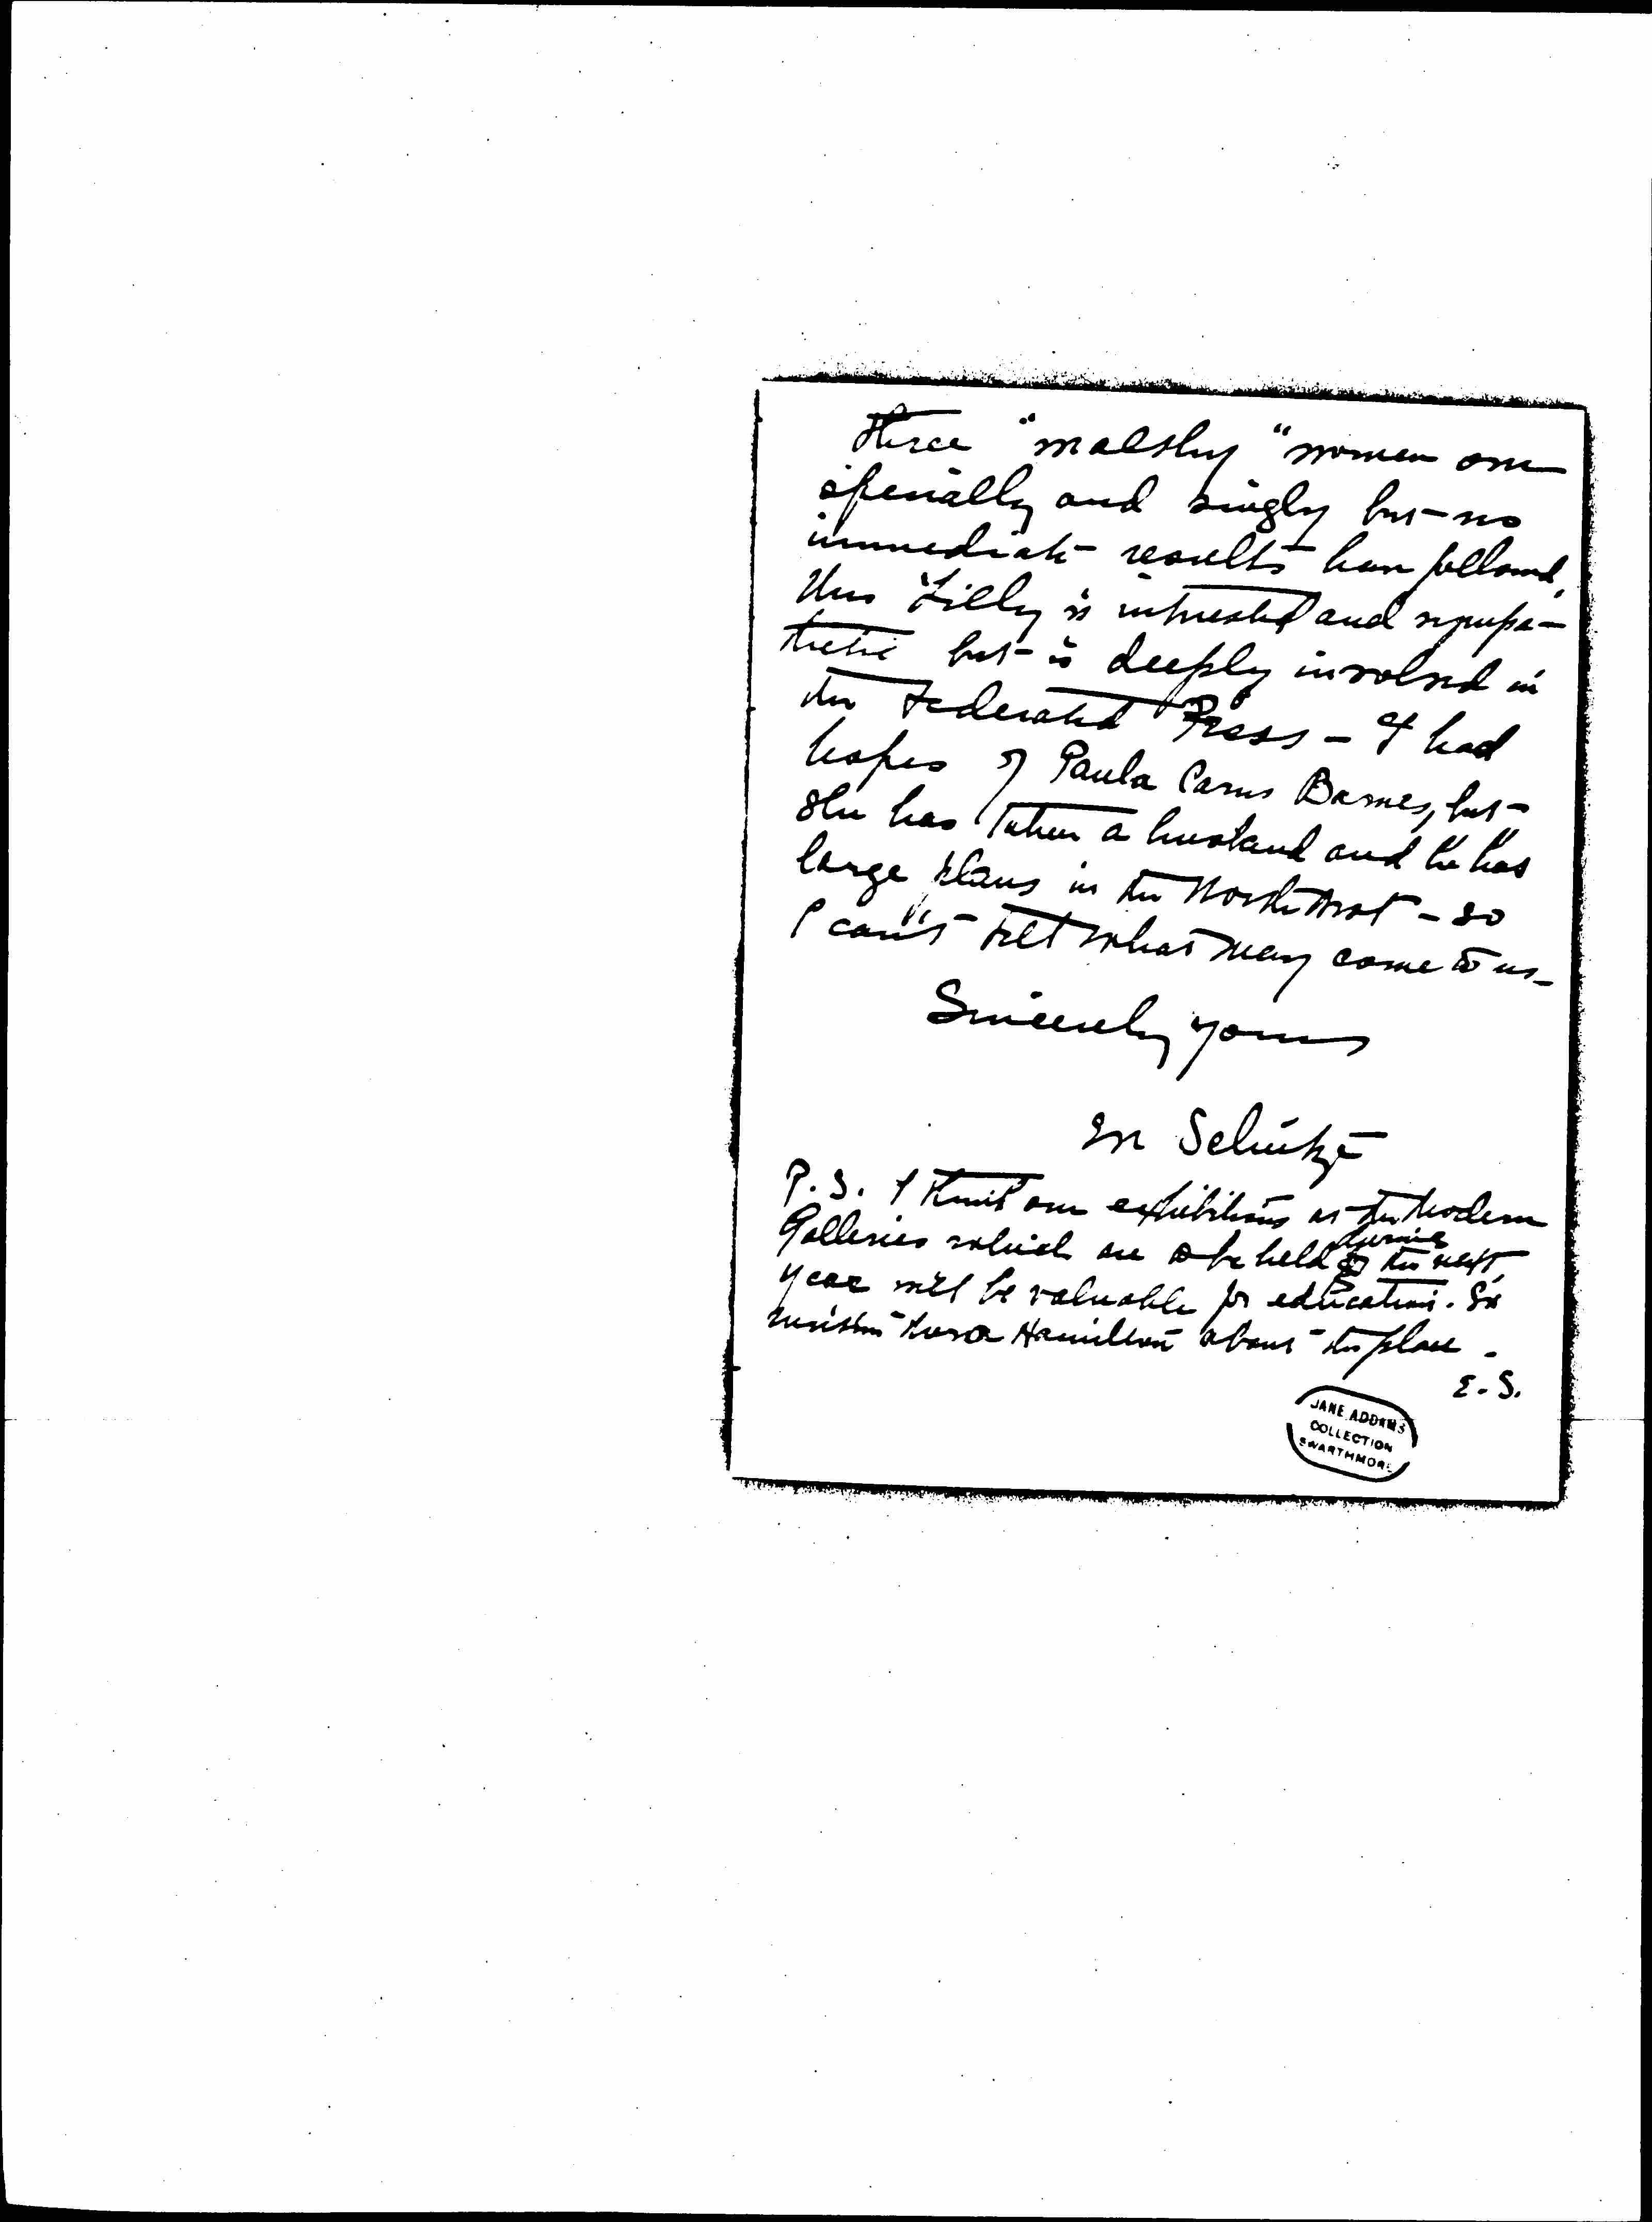 these "wealthy" women one
especially and singly but no
immediate results have followed.
Mrs Lilly is interested and sympa-
thetic but is deeply involved in
the Federated Press - I had
hopes of Paula Carus Barnes, but
she has taken a husband and he has
large plans in the Northwest - so
I can't tell what may come to us -
Sincerely yours
Schütze
P.S. I think our exhibitions at the Modern
Galleries which are to be held during the next
year will be valuable for education.
Hamilton about the place -
E.S.
JANE ADDAMS
COLLECTION
SWARTHMORE